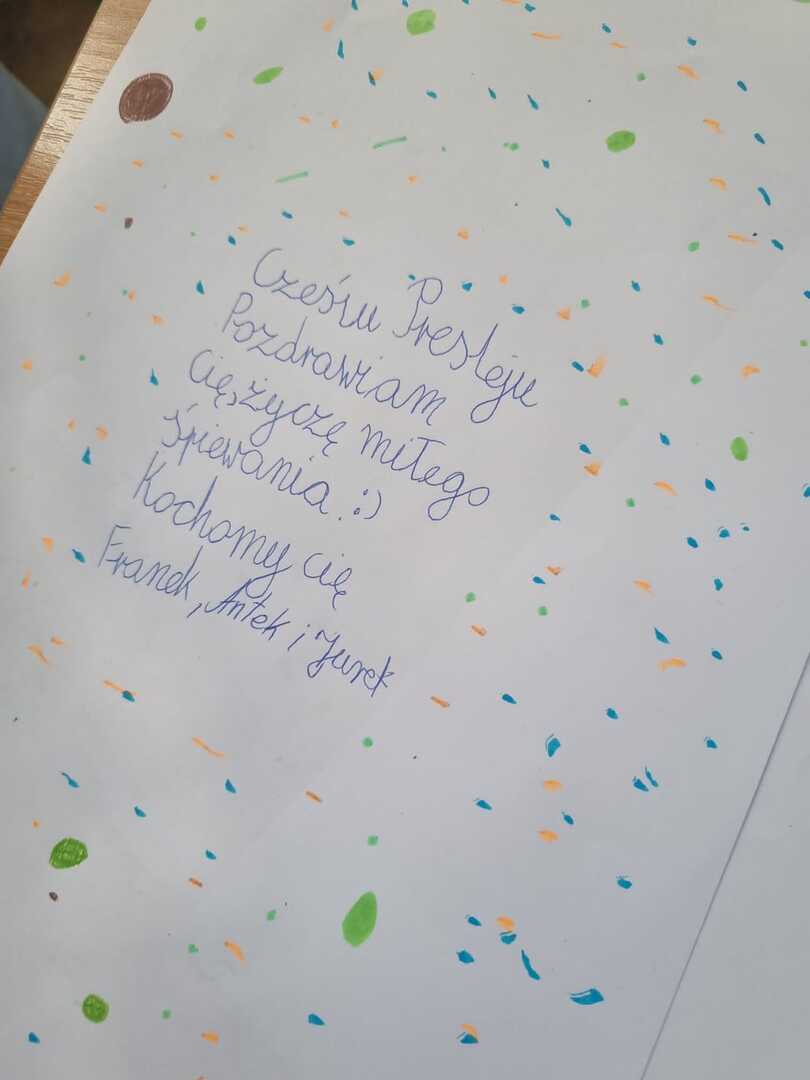 Cześiu Presleju
Pozdrawiam
Cię, życzę miłego
śpiewania :)
Kochomy cię
Franek, Antek i Jurek